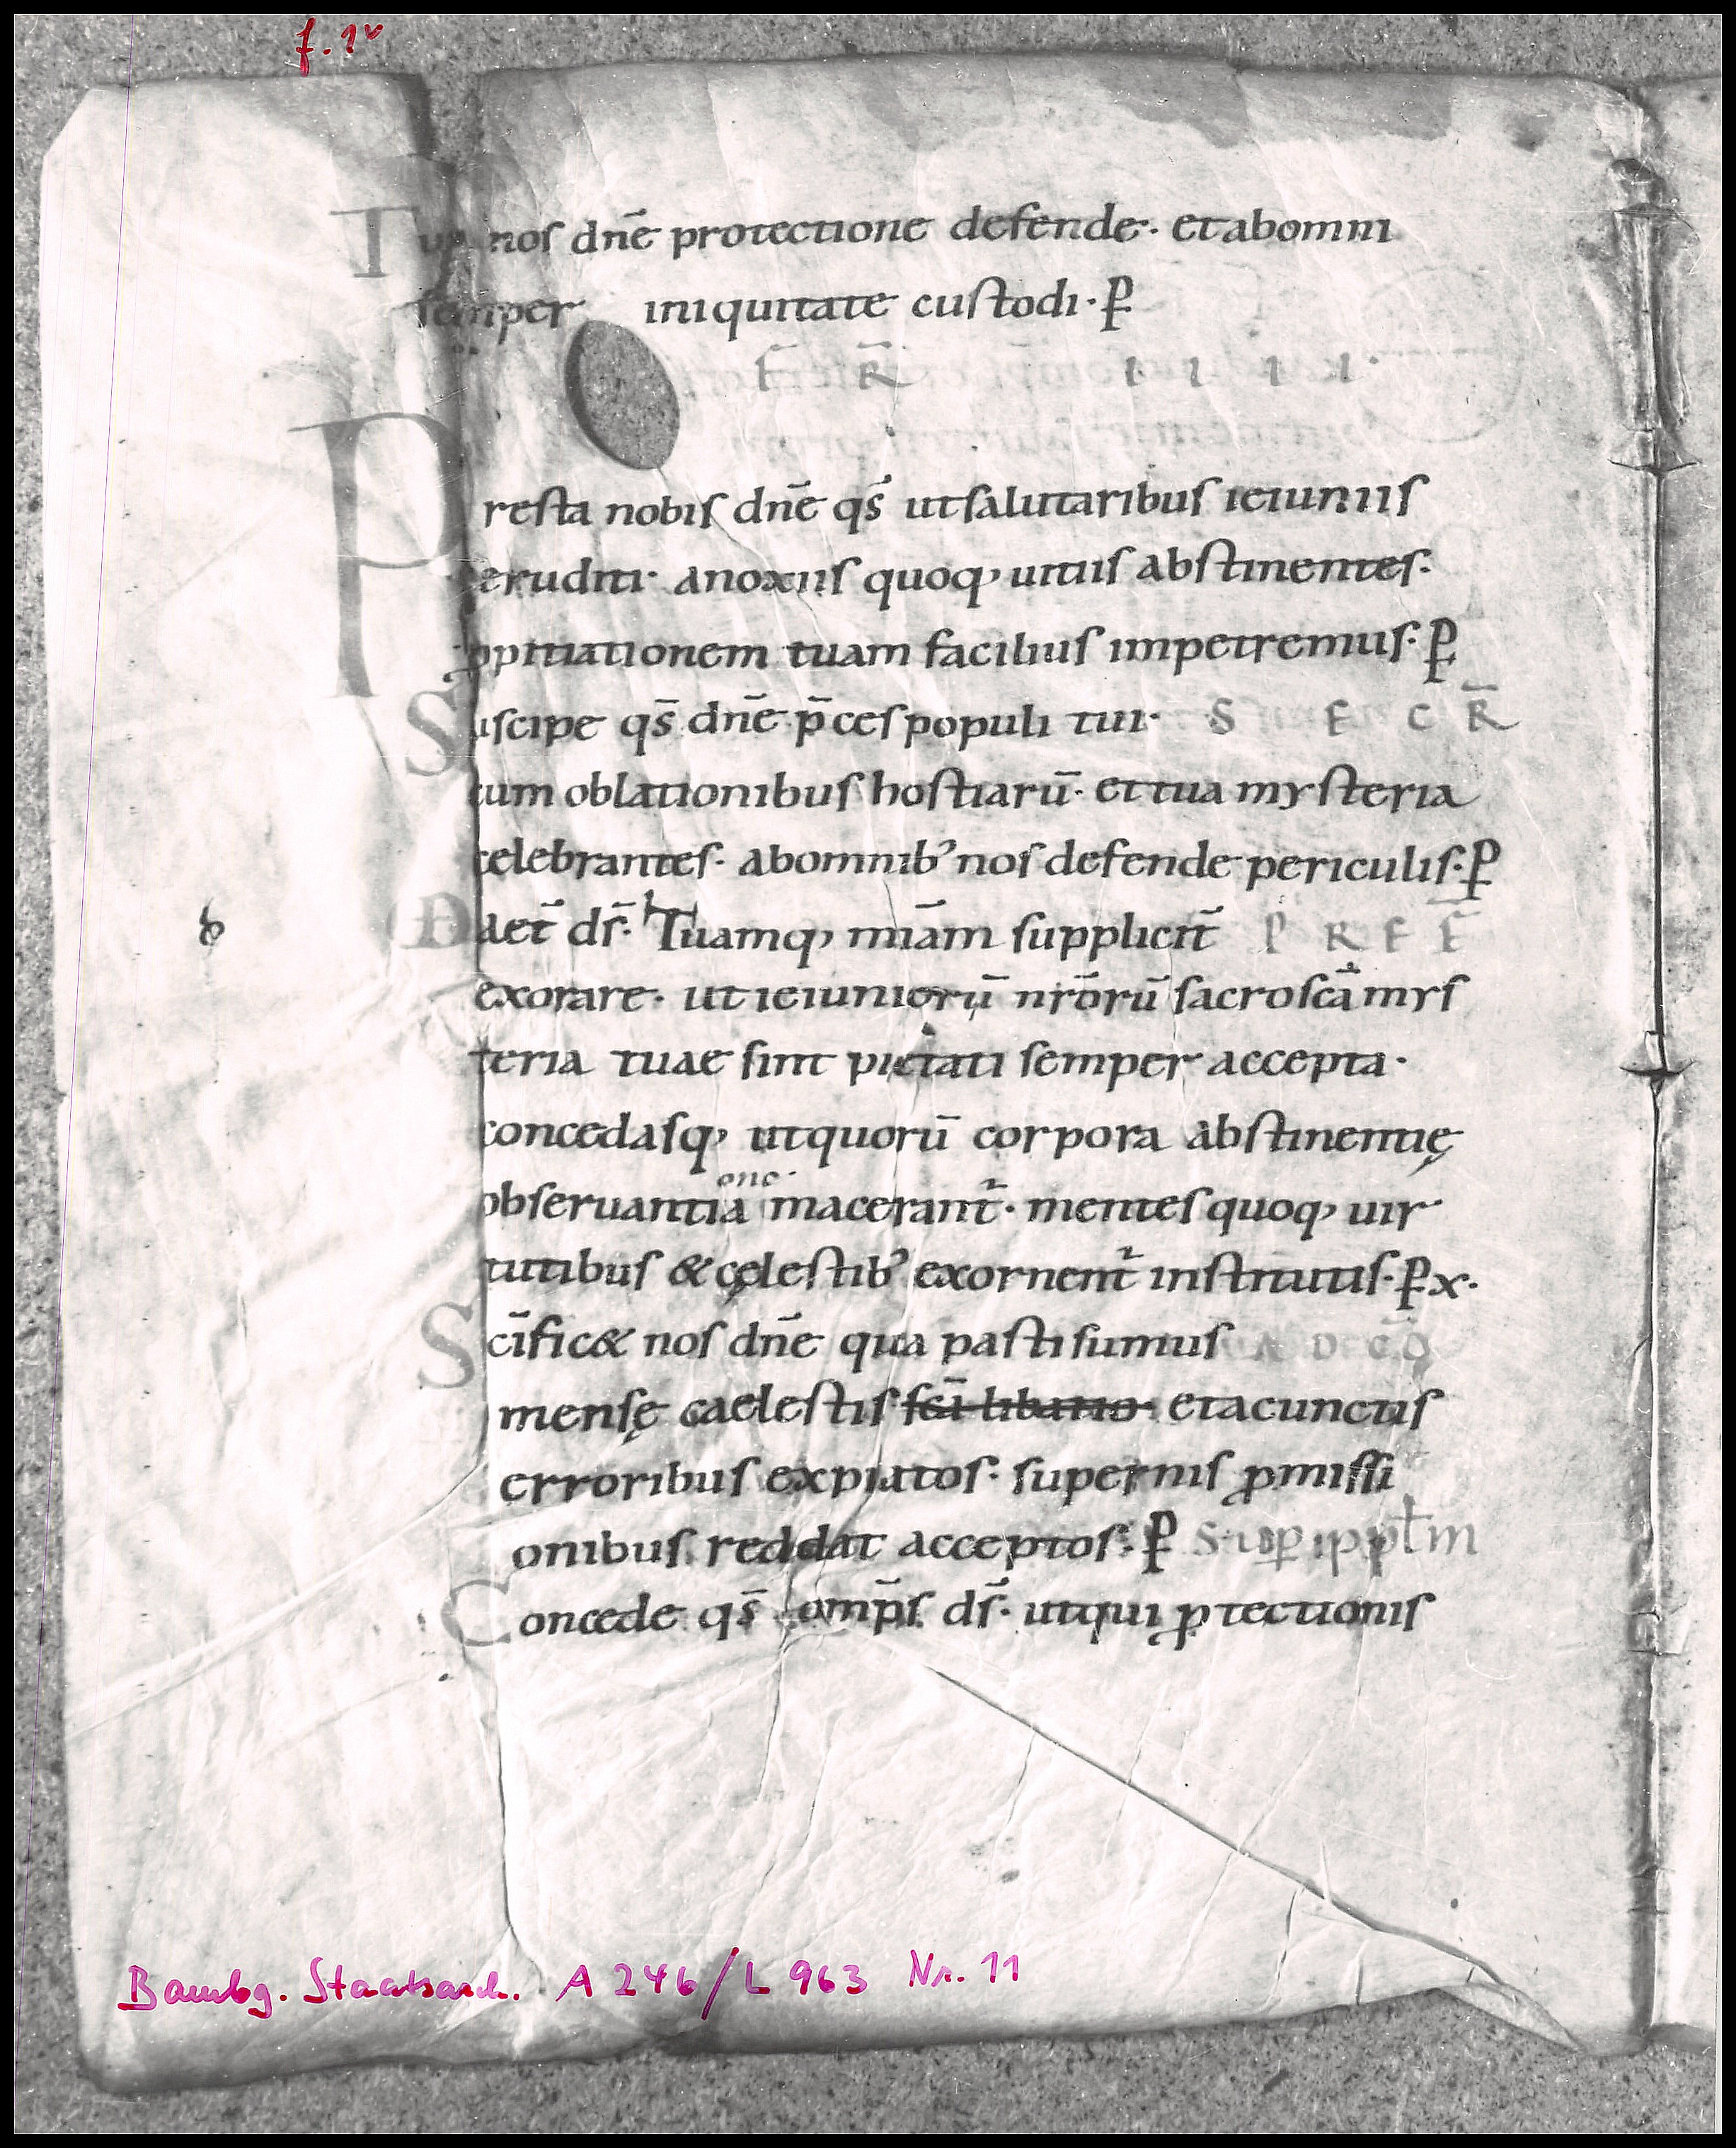 f. 1v
Tua nos dn̄e protectione defende· et abomni
semper iniquitate custodi· ꝑ
F̄ R̄ I I I I·
Presta nobis dn̄e qs̄ ut salutaribus ieiuniis
eruditi· anoxiis quoq, uitiis abstinentes·
ꝓpitiationem tuam facilius impetremus· ꝑ
Suscipe qs̄ dn̄e p̄ces populi tui· S E C R̄
cum oblationibus hostiarū· et tua mysteria
celebrantes· abomnib' nos defende periculis· ꝑ
b
D aet̄ ds̄· Tuamq, miām supplicit̄ P R E F̄
exorare· ut ieiuniorū nr̄orū sacrosc̄a mys
teria tuae sint pietati semper accepta·
concedasq, utquorū corpora abstinentię
one·
obseruantia macerant̄· mentes quoq, uir
tutibus & cęlestib' exornent̄ institutis· ꝑ x·
Sc̄ific& nos dn̄e qua pasti sumus A D C̄O
mensę caelestis sc̄i libatio· et acunctis
erroribus expiatos· supernis ꝓmissi
onibus reddat acceptos· ꝑ
Concede qs̄ omp̄s ds̄· utqui ꝓtectionis
Bambg. Staatsarch. A 246/L 963 Nr. 11